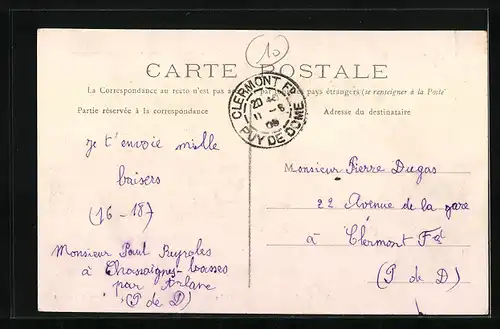 10
CARTE POSTALE
La Correspondance au recto n'est pas pays étrangers (se renseigner à la Poste)
Partie réservée à la correspondance
Adresse du destinataire
CLERMONT Fd
20
11 -6
PUY DE DOME
Je t'envoie mille
baisers
(16-18)
Monsieur Paul
à Chassaignes-basses
par Arlanc
(P de D)
Monsieur Pierre Dugas
22 Avenue de la gare
à Clermont Fd
(P de D)